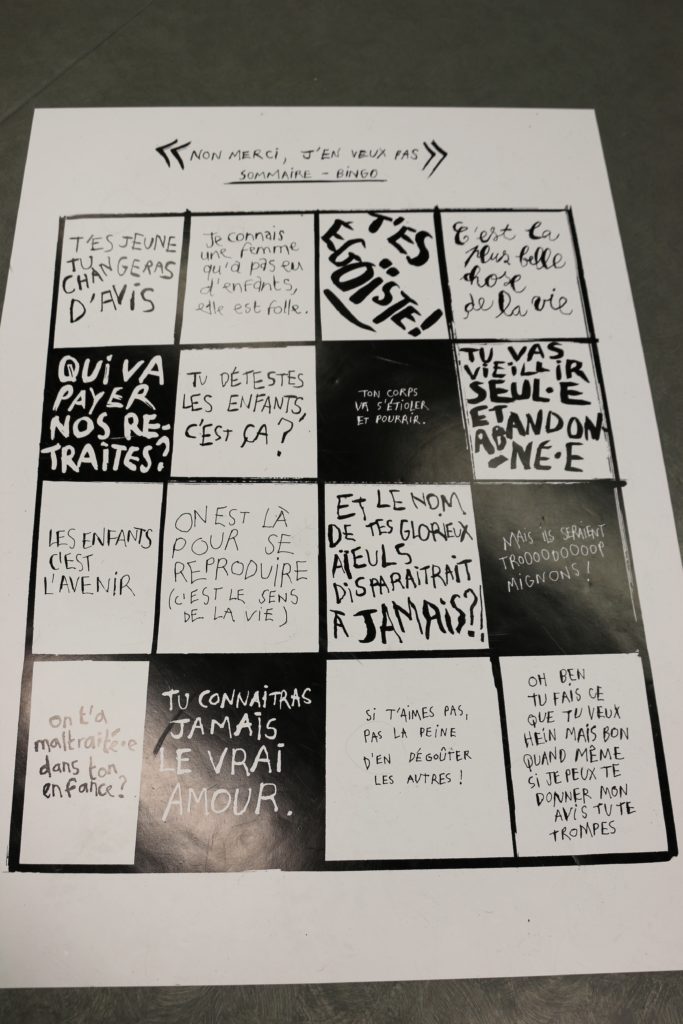 « NON MERCI, J'EN VEUX PAS »
SOMMAIRE - BINGO
T'ES JEUNE
TU
CHANGERAS
D'AVIS
Je connais
une femme
qu'a pas eu
d'enfants,
elle est folle.
T'ES
ÉGOÏSTE!
C'est la
plus belle
chose
de la vie
QUI VA
PAYER
NOS RE-
TRAITES?
TU DÉTESTES
LES ENFANTS,
C'EST ÇA ?
TON CORPS
VA S'ÉTIOLER
ET POURRIR.
TU VAS
VIEILLIR
SEUL·E
ET
ABANDON-
NÉ·E
LES ENFANTS
C'EST
L'AVENIR
ON EST LÀ
POUR SE
REPRODUIRE
(C'EST LE SENS
DE LA VIE)
ET LE NOM
DE TES GLORIEUX
AÏEULS
DISPARAITRAIT
À JAMAIS?!
MAIS ILS SERAIENT
TROOOOOOOOP
MIGNONS !
on t'a
maltraité·e
dans ton
enfance?
TU CONNAITRAS
JAMAIS
LE VRAI
AMOUR.
SI T'AIMES PAS,
PAS LA PEINE
D'EN DÉGOÛTER
LES AUTRES !
OH BEN
TU FAIS CE
QUE TU VEUX
HEIN MAIS BON
QUAND MÊME
SI JE PEUX TE
DONNER MON
AVIS TU TE
TROMPES